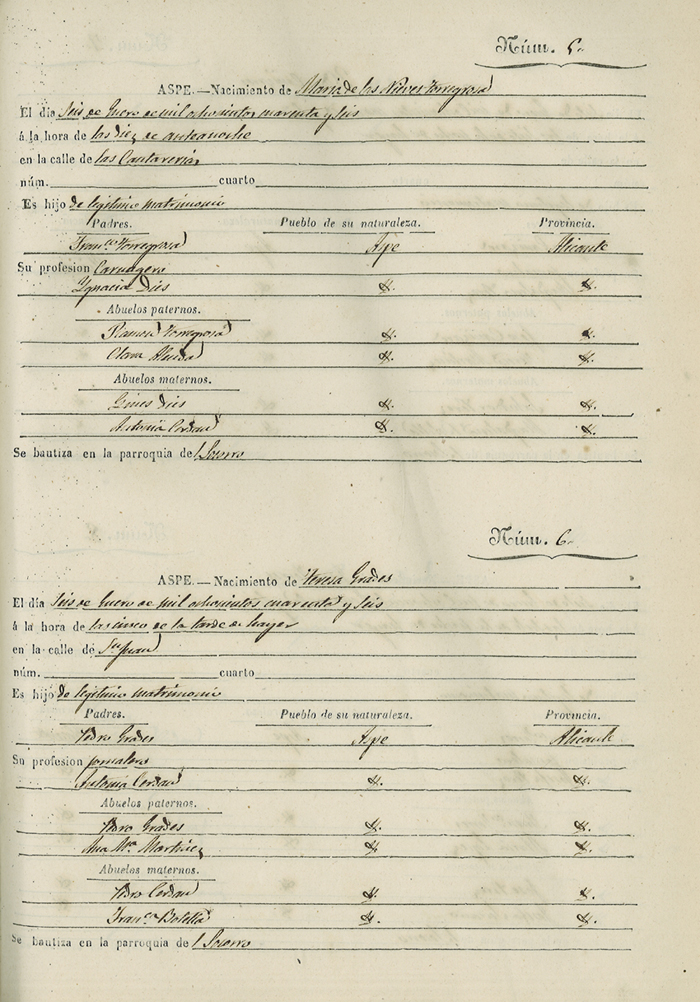 Núm. 5.
ASPE.—Nacimiento de Maria de las Nieves Torregrosa
El día Seis de Enero de mil ochocientos cuarenta y seis
á la hora de las diez de anteanoche
en la calle de las Cantarerias
núm. cuarto
Es hijo de legitimo matrimonio
Padres. Pueblo de su naturaleza. Provincia.
Franco Torregrosa Aspe Alicante
Su profesion
Ygnacia Dies id. id.
Abuelos paternos.
Ramon Torregrosa id. id.
Clara id. id.
Abuelos maternos.
Gines Dies id. id.
Antonia Cerdan id. id.
Se bautiza en la parroquia del Socorro
Núm. 6.
ASPE.—Nacimiento de Teresa Grades
El día Seis de Enero de mil ochocientos cuarenta y seis
á la hora de las cinco de la tarde de hayer
en la calle de Sn Juan
núm. cuarto
Es hijo de legitimo matrimonio
Padres. Pueblo de su naturaleza. Provincia.
Pedro Grades Aspe Alicante
Su profesion jornalero
Antonia Cerdan id. id.
Abuelos paternos.
Pedro Grades id. id.
Ana Ma Martinez id. id.
Abuelos maternos.
Pedro Cerdan id. id.
Franca Botella id. id.
Se bautiza en la parroquia del Socorro